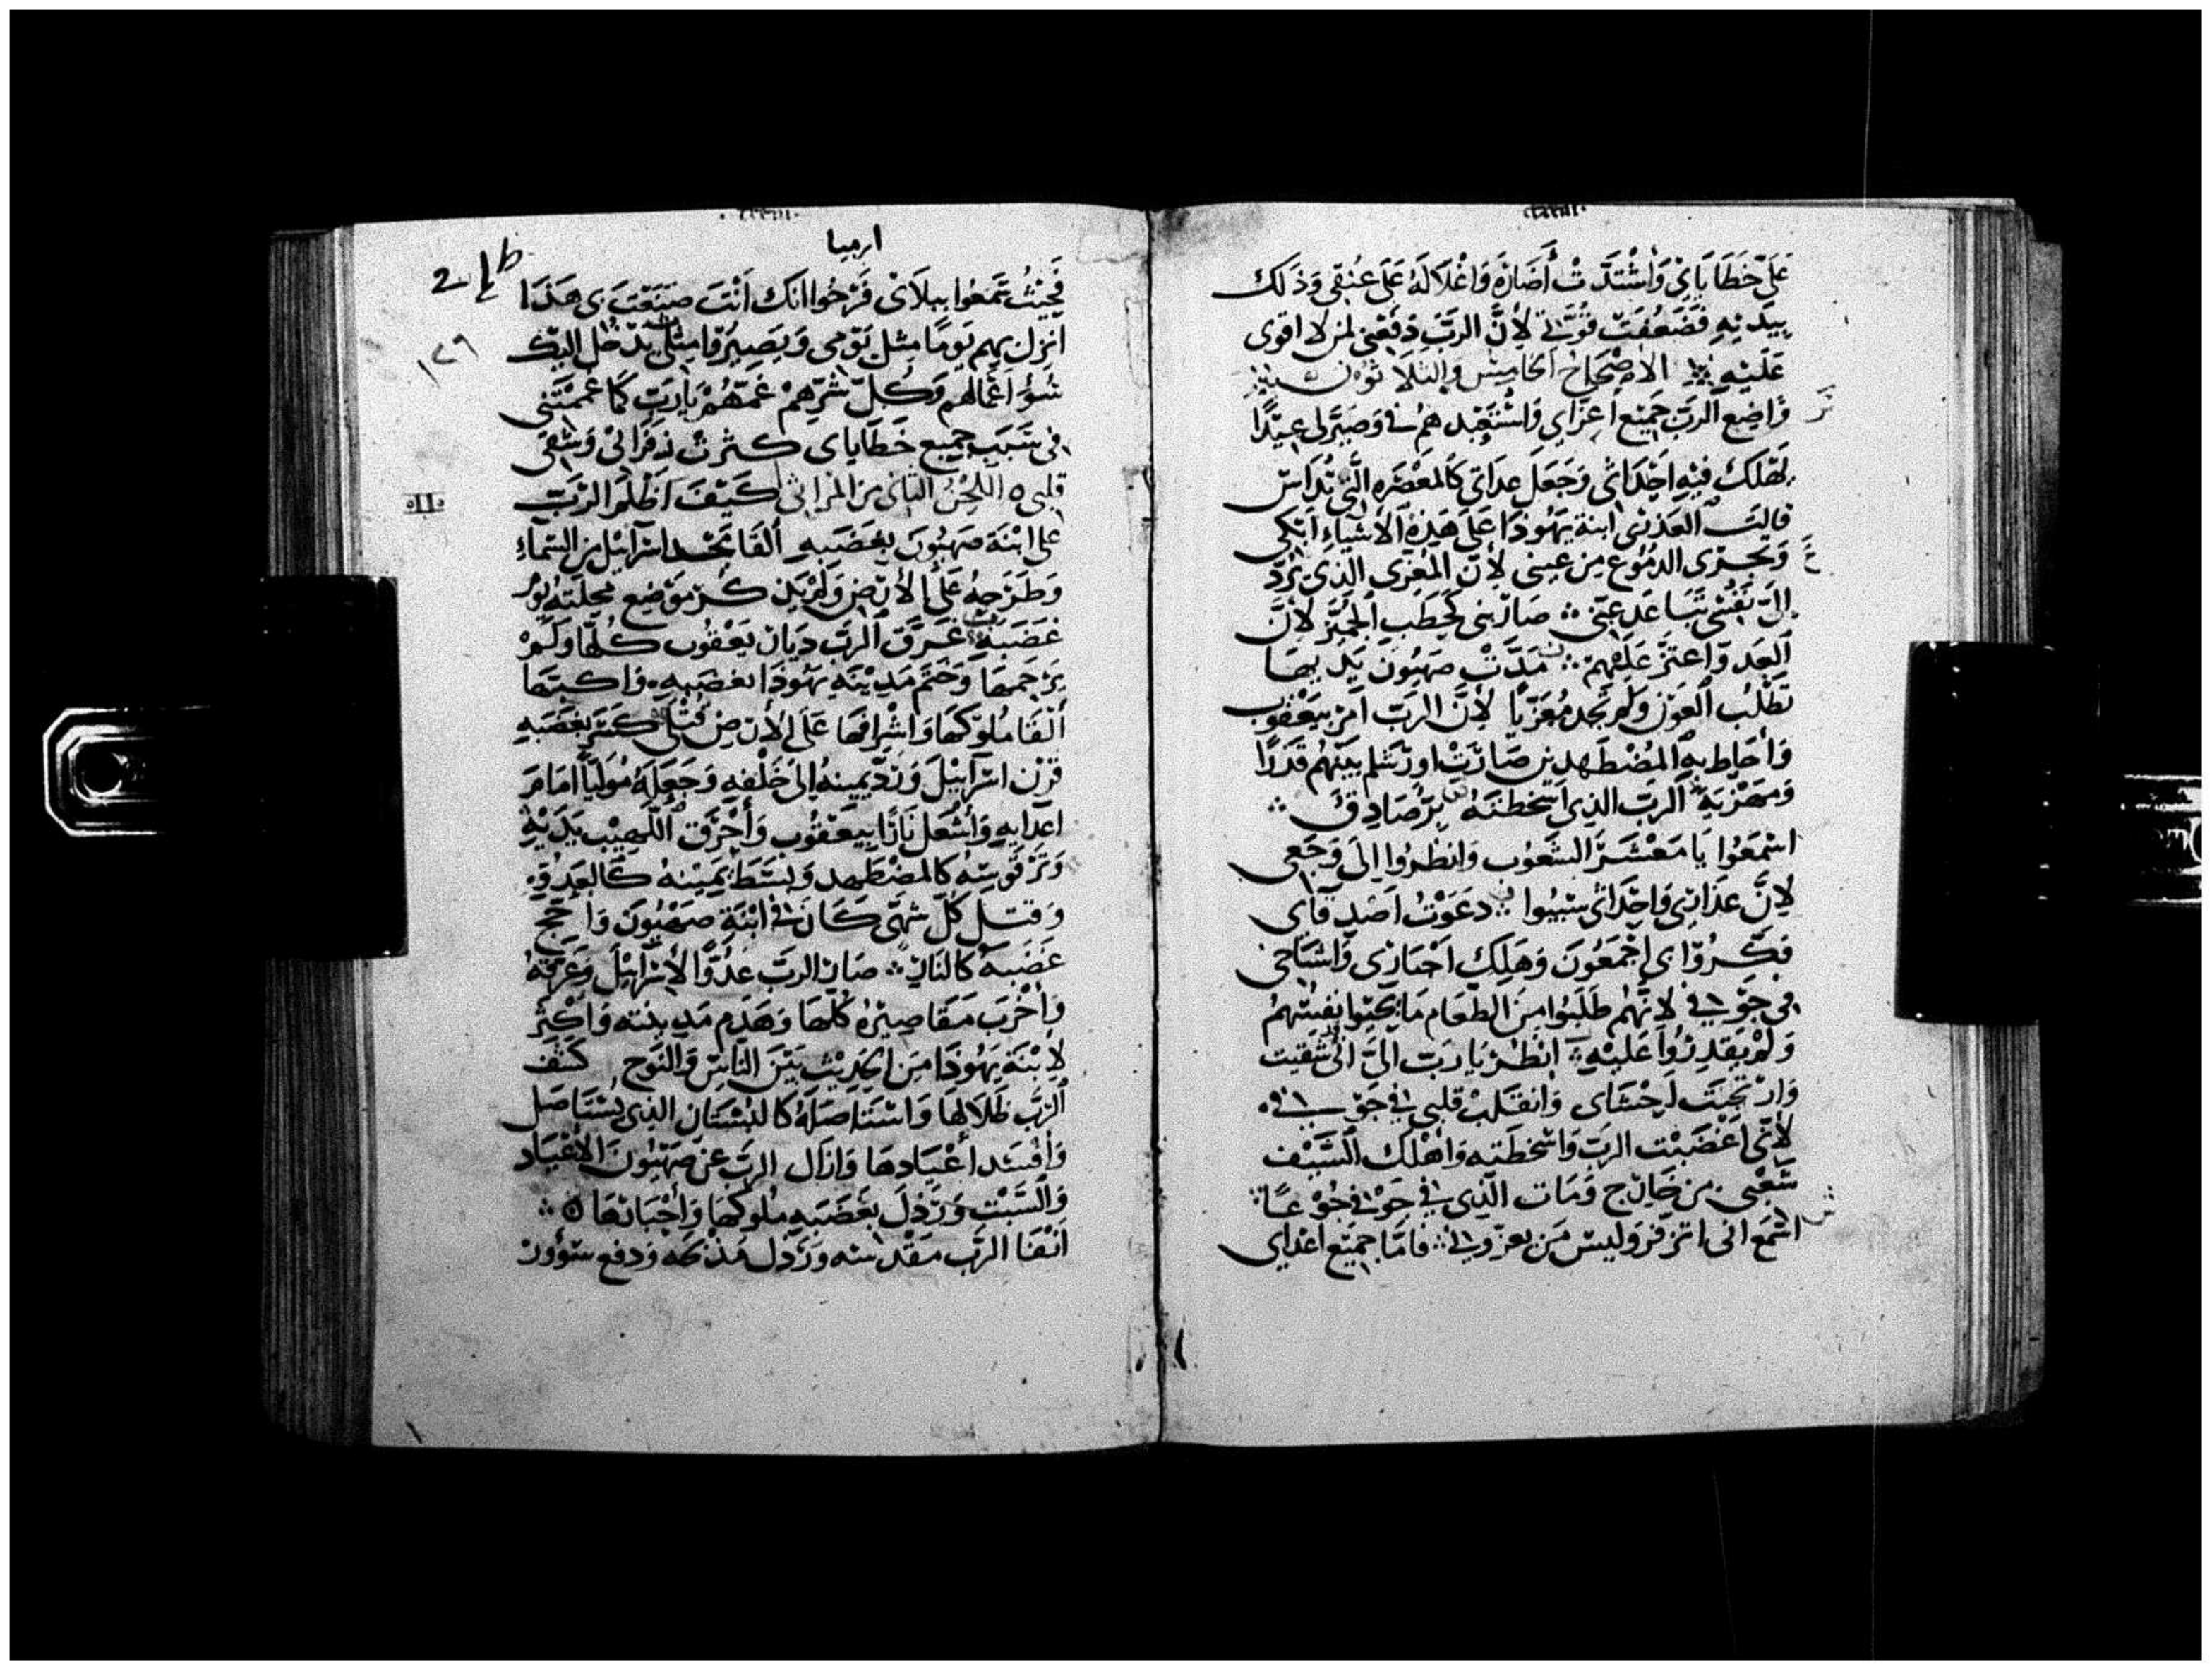 عَلَيّ خَطَايَايَ وَأشْتدَّتْ أَصَارُهُ وَاغْلَالَهُ عَلَى عُنُقِي وَذَلك
بِيَدَيْهِ فَضَعُفَتْ قُوَّتي لِأنَّ الربَّ دَفَعَنِي لمن لا اقوى
عَلَيْهِ الاصْحَاحُ الخَامِسُ والثلَاثُون
وَاضِع الربَ جَمِيْع اعِزَاي وَاسْتَعْبَدهُمْ وَصَيَّر لى عِيْدًا
لِتهْلَك فيْهِ اجِدَاثى وَجَعَل عدَاتى كَالمعْصَرَه الَّتِى تُدَاسْ
قالت العَذرى ابنة يَهُوذا عَلَى هَذِهْ الأشيَاء ابكى
وَتجرى الدمُوْع مِن عينى لأنَّ المُعزى الذِى يَرُدّ
إلىّ نفْسِى تَبَاعَد عنِّى صَار بنى كحَطب الجمر لأنَّ
العَدوّ اعتَزّ عَلَيْهِمْ مَدَّتْ صِهيُون يَديهَا
تطْلُب العَوْن ولم تجد مُعَزّيًا لِأنَّ الربّ امَر بيَعْقُوب
وَأحَاط بِه المُضْطَهدِين صَارَتْ اورَشلم بَيْنَهُم قَدَرًا
الربّ الذى اسْخطتهُ بَرّ صَادِق
اسْمَعُوا يَا مَعْشَرَ الشعُوب وَانظرُوا إلَى وَجَعى
لِأنَّ عَذارَى وَاحْدَاثى سُبيوا دعَوْتُ اصَدِقَاى
فكَرُوا بى اجْمَعُونَ وَهَلِك احْبَارى وَاشيَاخى
فى جَوْفى لِأنَّهُم طَلَبُوا مِنَ الطعَام مَا يحيوا نفُسَهُمْ
وَلَمْ يَقدِرُوا عَليْهِ انظُر يَا ربّ إلىّ انى شقيت
وَارْتجت احْشَاى وَانقَلبْ قلبى فى جَوْفى
لأنّى اغْضَبْت الربّ وَاسخطته وَاهْلك السَّيْف
شَعْبى من خَارِج وَمَات الّذى فى جَوْفى جُوْعًا
اسْمَع انى اتزفر وَليس مَن يعزّينى فامَّا جمِيْع اعْدَاى
ارميا
فَحِيْنَئذٍ تَمتّعُوا ببلَاى فَرحُوا انك أنْتَ صَنَعْتَ بى هَذَا
انزل بهِم يَومًا مِثل يَوْمِى وَيَصِيْرُوا مِثلى يَدخُل اليْك
سُوْ اعمَالهم وَكُل شرّهِمْ غمّهُمْ يَارَبّ كمَا غممتنى
فى سَبَب جميع خَطَايَاى كثرت زفرَاتى وَشقى
قلبى اللحْنُ الثانى من المرَاثى كيْف اظلَم الربّ
على ابْنة صِهيُونَ بِغَضَبِه ألقَا مجد اسرَائِيْل من السمَآءِ
وَطرحهُ عَلَى الأرْض وَلم يَذكر مَوْضِع محلته يَوْم
غَضَبهِ غَرَّق الربّ ديَار يَعْقُوب كلّها وَلَمْ
يَرْحَمهَا وَختَم مَدِيْنَة يَهُوذَا بغضَبِهِ وَاكبتها
ألقَا مُلوكهَا وَاشْرافهَا عَلَى الأرض قَتْلَى كسَر بِغَضَبِهِ
قرْن اسْرآئِيْلَ وَردّ يمينهُ إلى خَلْفِهِ وَجَعَلهُ مُوَليًا امَام
اعدَآيِهِ وَأشْعَل نَارًا بيعقُوب وَأحْرَق اللَّهِيْب يَدَيْهِ
وَترّ قوسهُ كالمضْطهد وَبسَط يَمِيْنهُ كالعَدُوّ
وَقتل كُلّ شهى كَان فى ابْنَة صِهْيُون وَاجّج
غضَبهُ كالنار صَار الربّ عَدُوًّا لإسْرَآئِيْل وَغرقهُ
وَأخْربَ مَقَاصِيْرَهُ كلّهَا وَهَدَم مَدينته وَاكثَر
لابْنَة يَهُوذَا مِن الحَدِيْث بَيْن النَّاسْ وَالنوح كشف
الربّ ظلَالهَا وَاسْتَاصَلهُ كالبُسْتَان الذى يُسْتَاصَل
وَأفسَد أعْيَادهَا وَازَال الربّ عن صِهيُونَ الاعْيَاد
وَالسَّبْت وَرَذل بغَضَبِهِ مُلوكهَا وَأحْبَارَهَا
انفَا الربّ مَقْدسه وَرَذل مَذبحَه وَدفع سُوْر